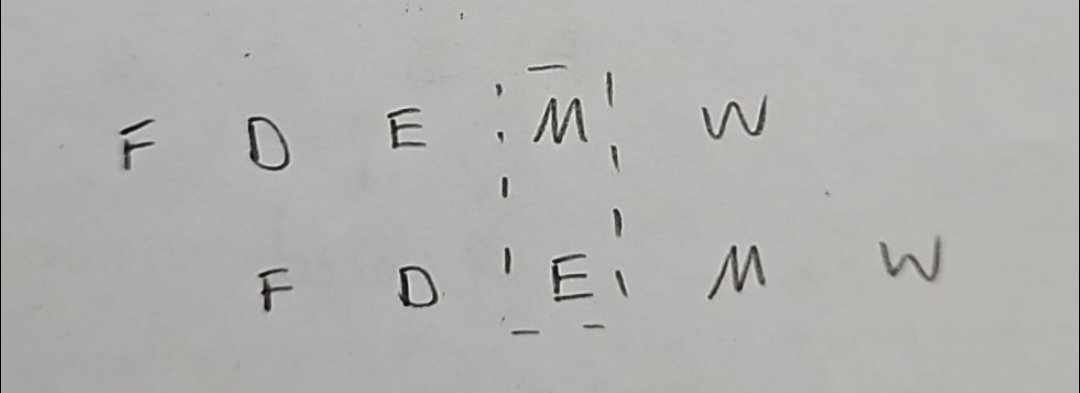 F D E M W
F D E M W